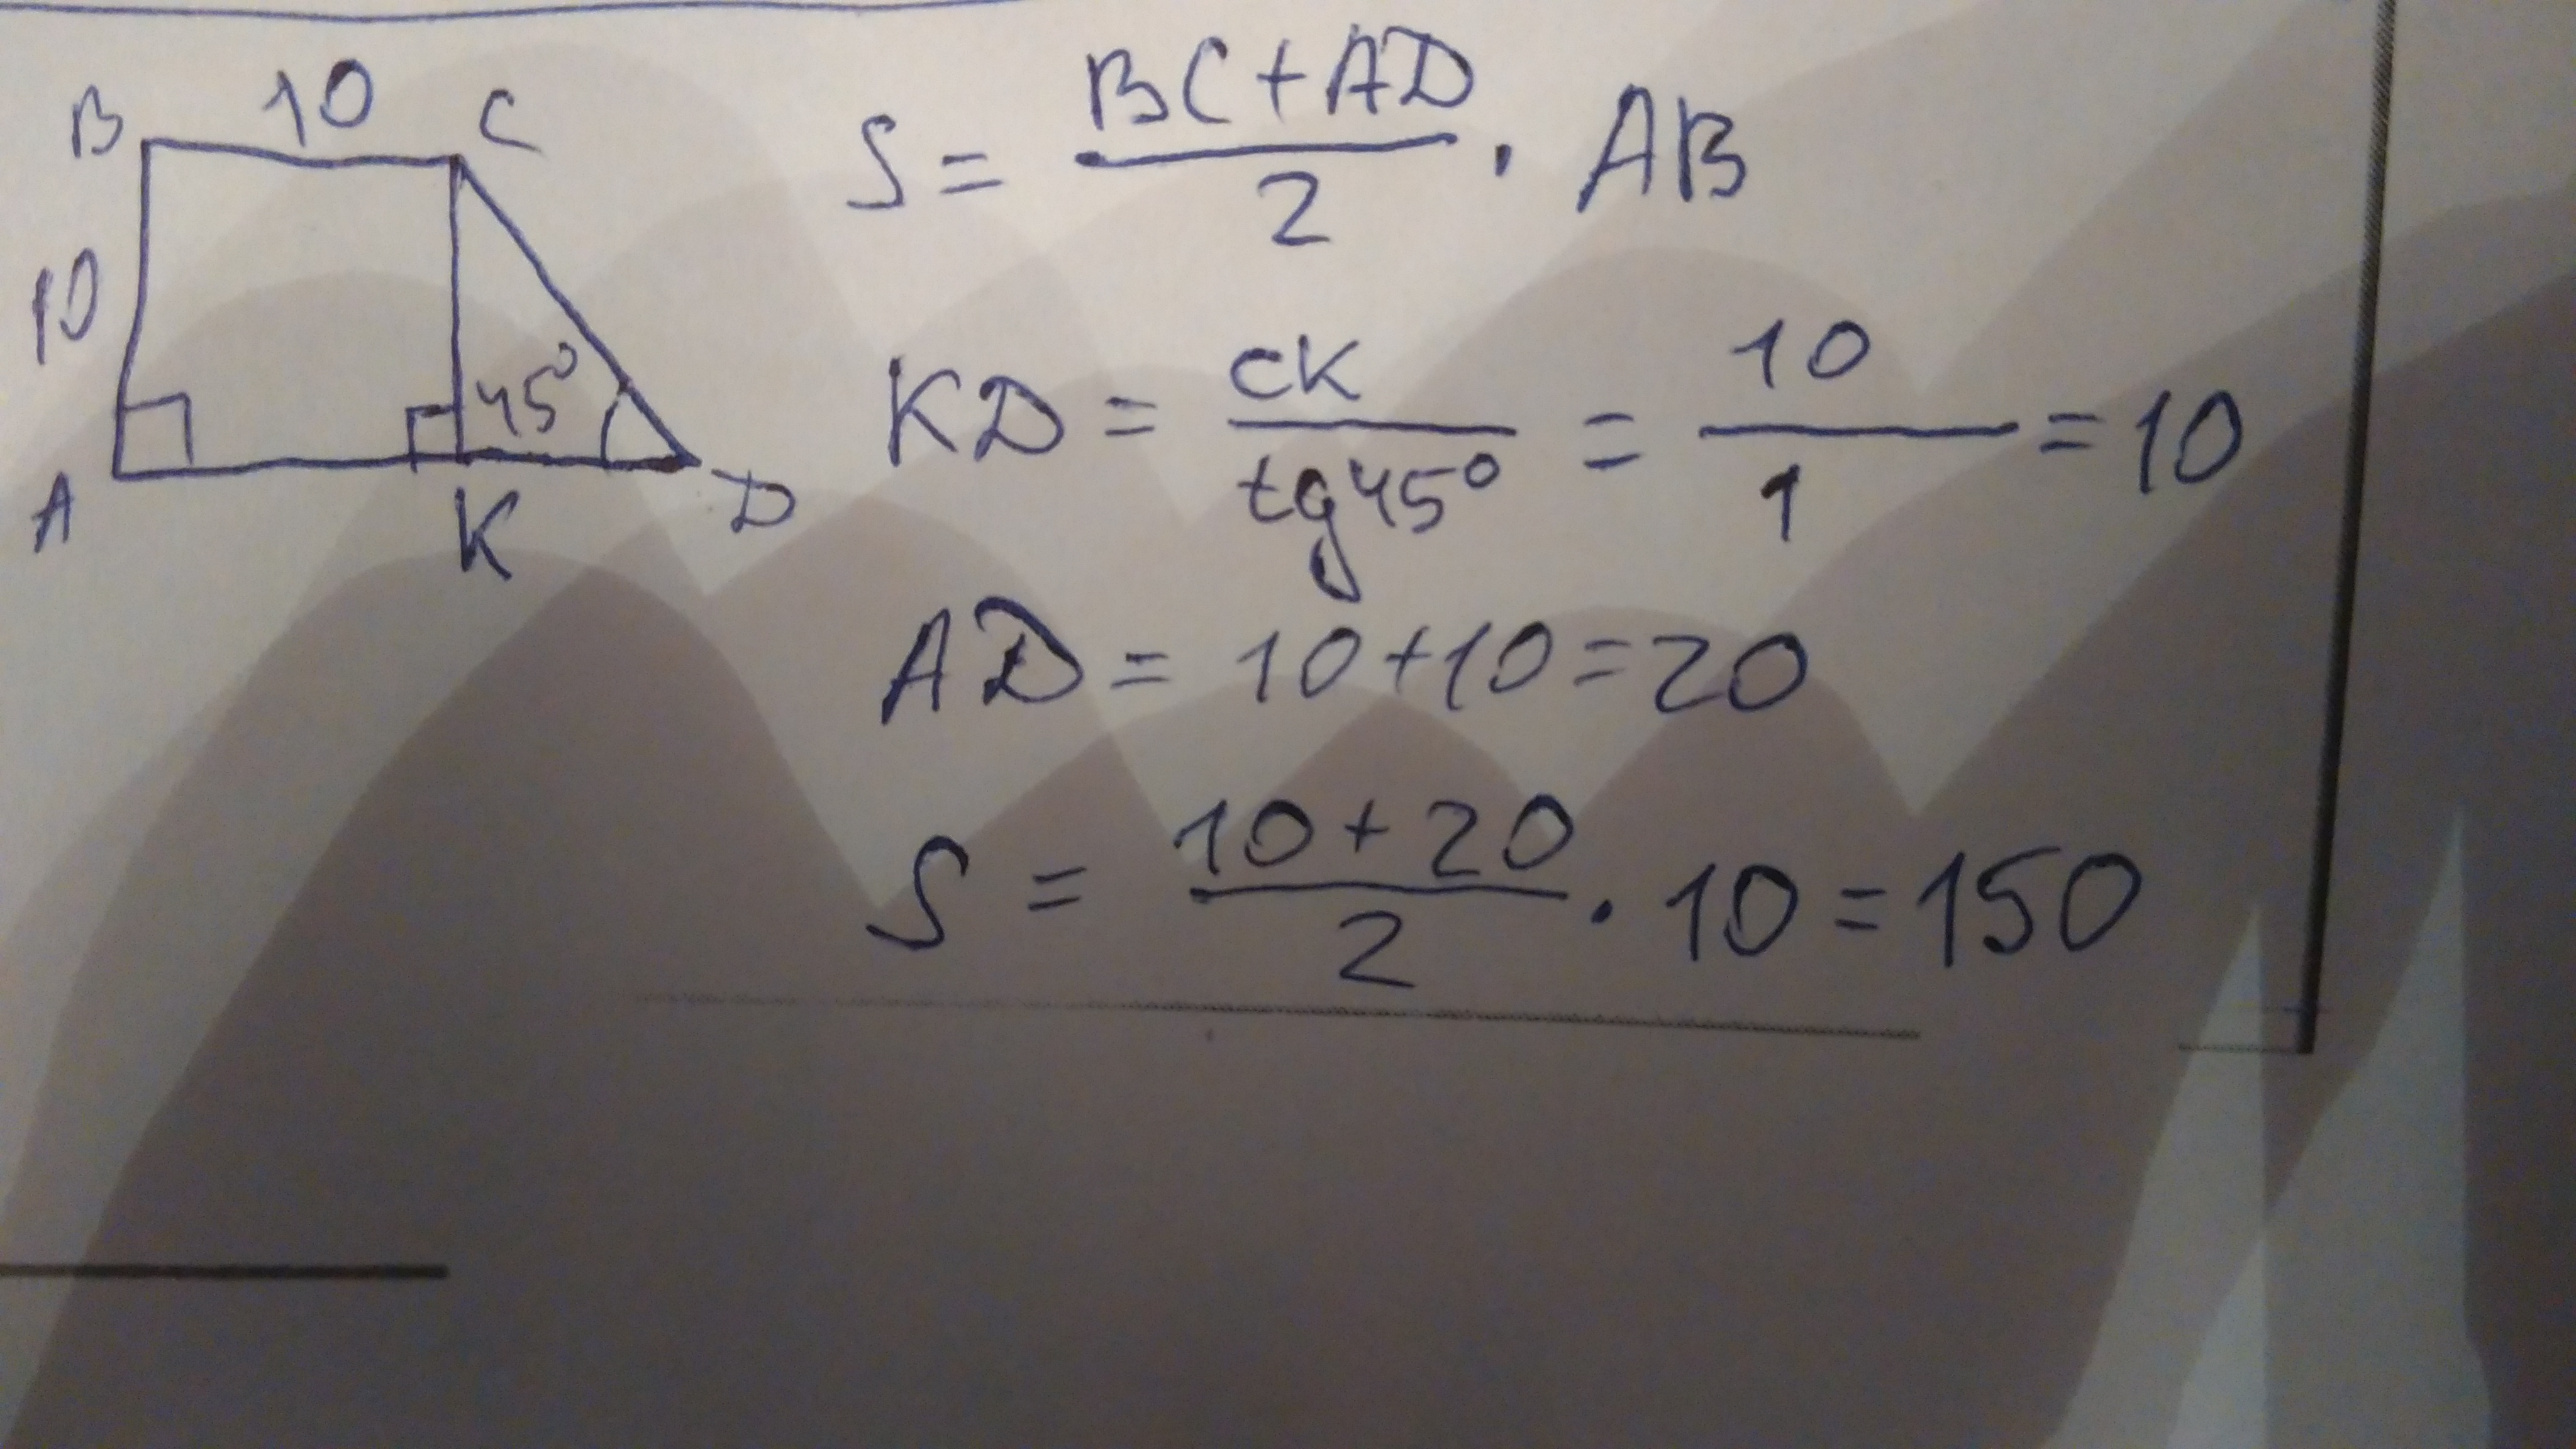 B 10 C
10
45°
A K D
S = \frac{BC+AD}{2} · AB
KD = \frac{CK}{tg45°} = \frac{10}{1} = 10
AD = 10+10=20
S = \frac{10+20}{2} · 10 = 150